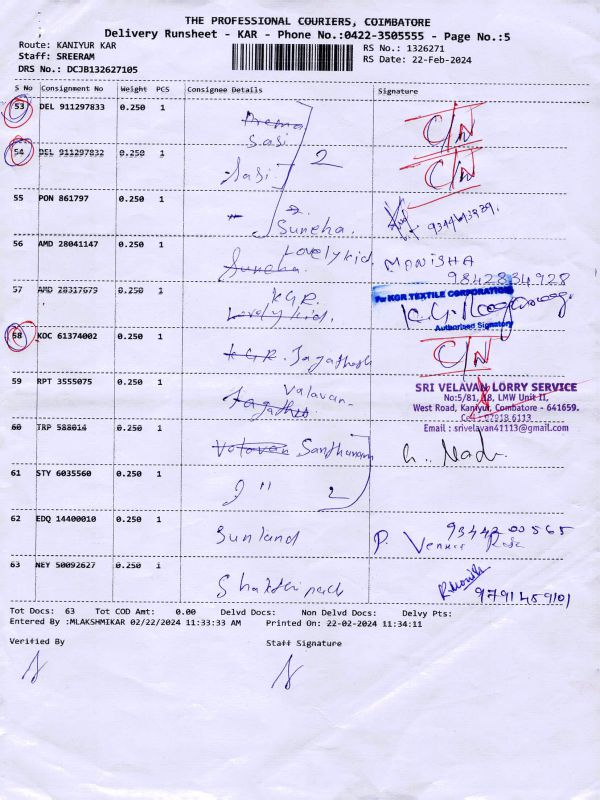 THE PROFESSIONAL COURIERS, COIMBATORE
Delivery Runsheet - KAR - Phone No.:0422-3505555 - Page No.:5
Route: KANIYUR KAR
Staff: SREERAM
DRS No.: DCJB132627105
RS No.: 1326271
RS Date: 22-Feb-2024
S No Consignment No Weight PCS Consignee Details Signature
53 DEL 911297833 0.250 1 Prema Sasi C/N
54 DEL 911297832 0.250 1 Sasi 2 C/N
55 PON 861797 0.250 1 Suneha.
56 AMD 28041147 0.250 1 Suneha. Lovely kid, MONISHA
9842834928
57 AMD 28317679 0.250 1 KGR. Lovely kid,
For KGR TEXTILE CORPORATION
Authorised Signatory
58 KOC 61374002 0.250 1 KGR. Jagathesh C/N
59 RPT 3555075 0.250 1 Valavan
SRI VELAVAN LORRY SERVICE
No:5/81, 18, LMW Unit II,
West Road, Kaniyur, Combatore - 641659.
Email : srivelavan41113@gmail.com
60 TRP 588014 0.250 1 Valavan Santhanam
61 STY 6035560 0.250 1 " 2
62 EDQ 14400010 0.250 1 Sunland P.
63 NEY 50092627 0.250 1 Shakthi
9791459101
Tot Docs: 63 Tot COD Amt: 0.00 Delvd Docs: Non Delvd Docs: Delvy Pts:
Entered By :MLAKSHMIKAR 02/22/2024 11:33:33 AM Printed On: 22-02-2024 11:34:11
Verified By Staff Signature